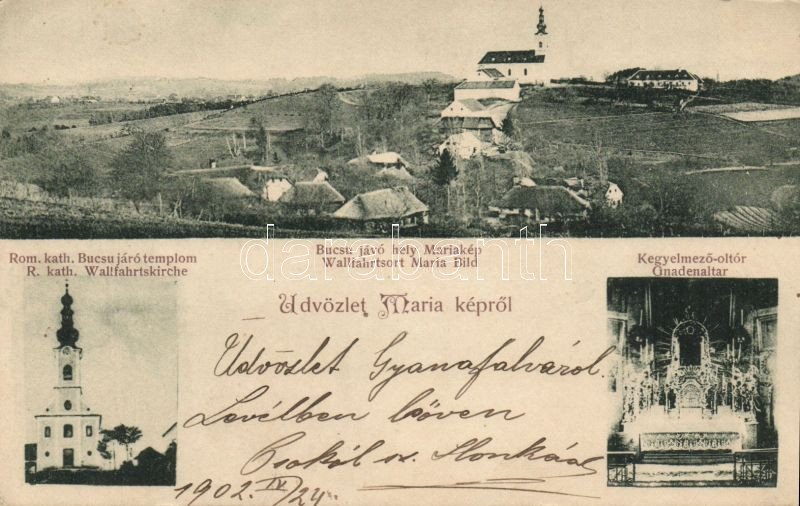 Rom. kath. Bucsu járó templom
R. kath. Wallfahrtskirche
Bucsu jávó hely Mariakép
Wallfahrtsort Maria Bild
Kegyelmező-oltór
Gnadenaltar
darabanth
Üdvözlet Maria képről
Üdvözlet Gyanafalváról.
Levélben bőven
Csokól
1902 IV/24